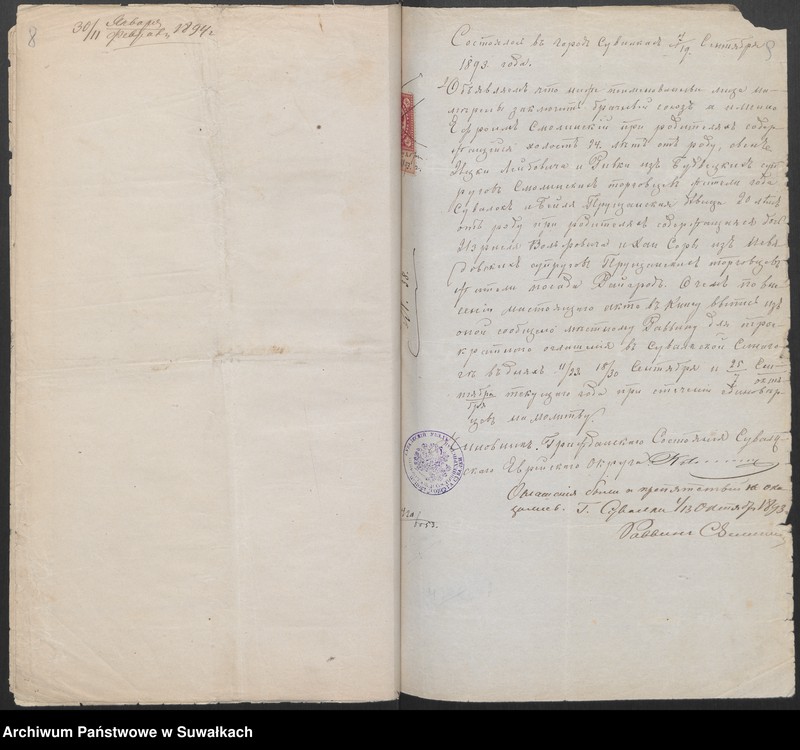 8
30/11 Января
Февраля 1894 г.
Состоялся въ городѣ Сувалкахъ 7/19 Сентября
1893 года.
Объявляемъ что ниже поименованныя лица на-
мѣрены заключить брачный союзъ а именно
Ефроимъ Смолинскій при родителяхъ содер-
жащійся холостъ 24 лѣтъ отъ роду, сынъ
Ицки Лейбовича и Ривки изъ супру-
говъ Смолинскихъ торговцевъ жители года
Сувалокъ и Бейля Прущанская дѣвица 20 лѣтъ
отъ роду при родителяхъ содержащаяся дочь
Израеля Вольфовича и Хаи Соры изъ
супруговъ Прущанскихъ торговцевъ
жители посада Райгродъ. О чемъ по вне-
сеніи настоящаго акта въ книгу
оной сообщено мѣстному Раввину для трое-
кратнаго оглашенія въ Сувалкской Синаго-
гѣ въ дняхъ 11/23 18/30 Сентября и 25 Сен-
тября / 7 октября текущаго года при стеченіи единовѣр-
цевъ на молитву.
Чиновникъ Гражданскаго Состоянія Сувалк-
скаго Еврейскаго Округа
Оглашенія были и препятствій не ока-
залось. Г. Сувалки 1/13 Октября 1893 г.
Раввинъ
Archiwum Państwowe w Suwałkach